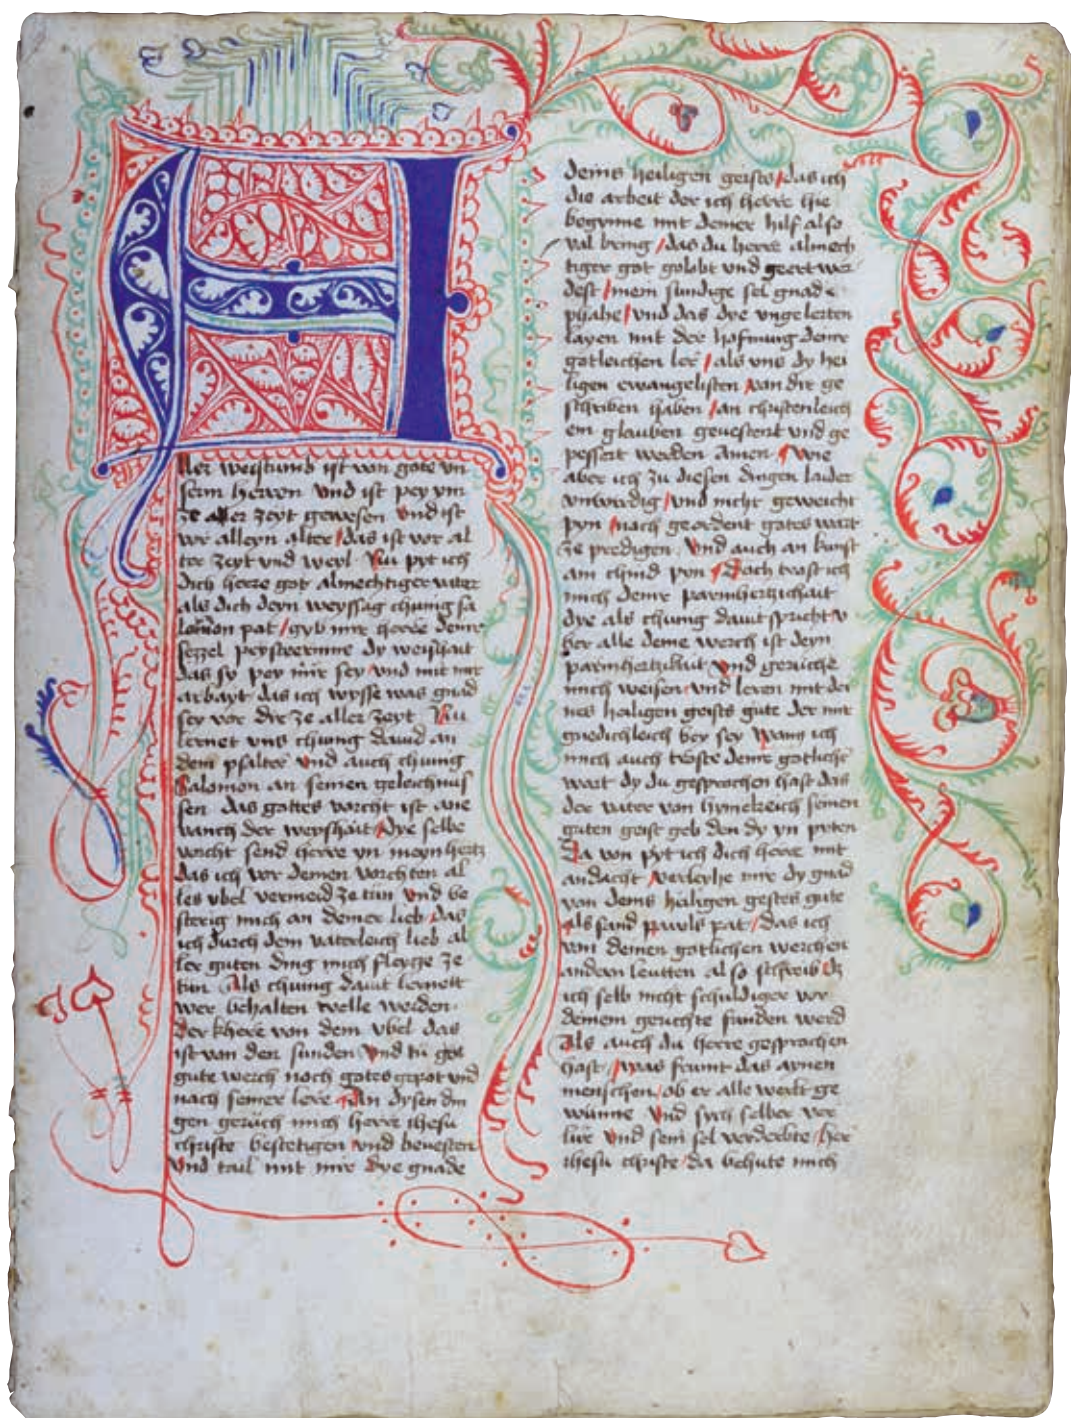 A
ller weistumb ist von gote vn
serm herren vnd ist pey ym
ze aller zeyt gewesen vnd ist
vor alleyn alter / das ist vor al
ter zeyt vnd weyl Nu pyt ich
dich herre got almechtiger vater
als dich deyn weyssag chunig sa
lomon pat / gyb mir herre deinr
sezzel peysteerinne dy weishait
das sy pey mir sey vnd mit mir
arbayt das ich wysse was gnad
sey vor dir ze aller zeyt Nu
lernet vns chunig dauid an
dem psalter vnd auch chunig
Salomon an seinen geleichnus
sen das gottes vorcht ist ane
vanch der weyshait / Dye selbe
vorcht send herre yn meyn hertz
das ich vor deinen vorchten al
les vbel vermeid ze tun vnd be
sterig mich an deiner lieb das
ich durch dein vaterleich lieb al
ler guten ding mich fleyge ze
tun Als chunig dauit lernett
wer behalten welle werden
der khere von dem vbel das
ist von den sunden vnd tu got
gute werch noch gotes gepot vnd
nach seiner lere An dysen din
gen geruch mich herre ihesu
christe bestetigen vnd beuesten
vnd tail mit mir dye gnade
deins heiligen geists / das ich
die arbeit der ich herre hie
begynne mit deiner hilf also
vol bring / das du herre almech
tiger got gelobt vnd geert wer
dest / mein sundige sel gnad e
phahe / vnd das dye vngelerten
layen mit der hofnung deinr
gotleichen ler / als vns dy hei
ligen ewangelisten von dir ge
schriben haben / an christenleich
em glauben geuestent vnd ge
pessert werden amen Wie
aber ich zu diesen dingen laider
vnwirdig / vnd nicht geweicht
pyn / nach geordent gotes wart
ze predigen Vnd auch an kunst
am chind pyn Doch trost ich
mich deinr parmhertzichait
dye als chunig dauit spricht v
ber alle deine werch ist deyn
parmhertzikait vnd geruche
mich weisen vnd leren mit dei
nes heiligen geists gute der mir
gnedichleich bey sey Wann ich
mich auch tröste deinr gotlicher
wart dy du gesprochen hast das
der vater von hymelreich seinen
guten geist geb den dy yn pyten
Da von pyt ich dich herre mit
andacht / verleyhe mir dy gnad
von deins heiligen gestes gute
als sand pauls pat / das ich
von deinen gotlichen werchen
andern leutten also schreib dz
ich selb nicht schuldiger vor
deinem gerichte funden werd
Als auch du herre gesprochen
hast / was frumt das armen
menschen / ob er alle werlt ge
wunne vnd sych selber ver
lur vnd sein sel verderbte / her
ihesu christe da behute mich